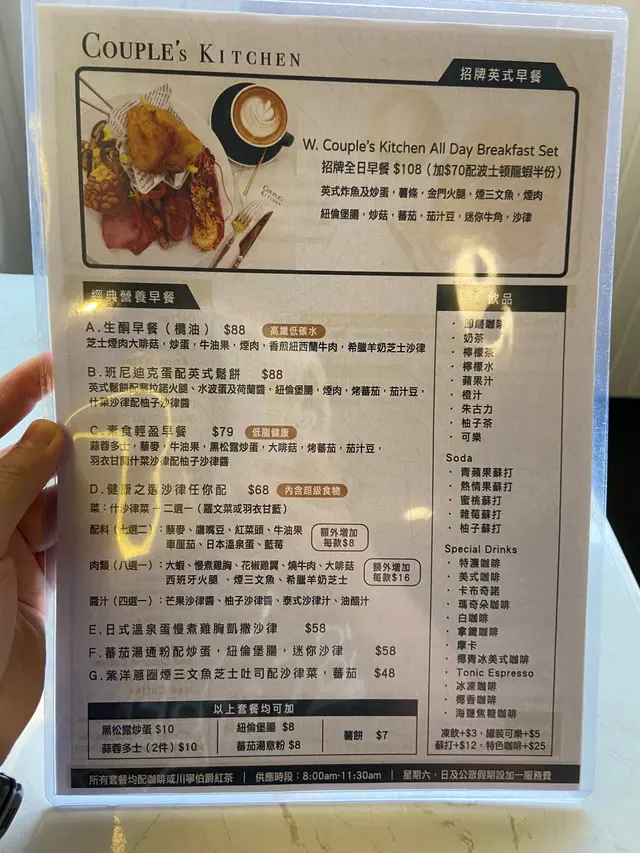 COUPLE's KITCHEN
招牌英式早餐
W. Couple's Kitchen All Day Breakfast Set
招牌全日早餐 $108（加$70配波士頓龍蝦半份）
英式炸魚及炒蛋，薯條，金門火腿，煙三文魚，煙肉
紐倫堡腸，炒菇，蕃茄，茄汁豆，迷你牛角，沙律
COUPLE's KITCHEN
經典營養早餐
A.生酮早餐（欖油） $88 高纖低碳水
芝士煙肉大啡菇，炒蛋，牛油果，煙肉，香煎紐西蘭牛肉，希臘羊奶芝士沙律
B.班尼迪克蛋配英式鬆餅 $88
英式鬆餅配塞拉諾火腿、水波蛋及荷蘭醬，紐倫堡腸，煙肉，烤蕃茄，茄汁豆，
什菜沙律配柚子沙律醬
C.素食輕盈早餐 $79 低脂健康
蒜蓉多士，藜麥，牛油果，黑松露炒蛋，大啡菇，烤蕃茄，茄汁豆，
羽衣甘藍什菜沙律配柚子沙律醬
D.健康之選沙律任你配 $68 內含超級食物
菜：什沙律菜 + 二選一（羅文菜或羽衣甘藍）
配料（七選二）：藜麥、鷹嘴豆、紅菜頭、牛油果
車厘茄、日本溫泉蛋、藍莓
額外增加
每款$8
肉類（八選一）：大蝦、慢煮雞胸、花椒雞翼、燒牛肉、大啡菇
西班牙火腿 、煙三文魚、希臘羊奶芝士
額外增加
每款$16
醬汁（四選一）：芒果沙律醬、柚子沙律醬、泰式沙律汁、油醋汁
E.日式溫泉蛋慢煮雞胸凱撒沙律 $58
F.蕃茄湯通粉配炒蛋，紐倫堡腸，迷你沙律 $58
G.紫洋蔥圈煙三文魚芝士吐司配沙律菜，蕃茄 $48
以上套餐均可加
黑松露炒蛋 $10
蒜蓉多士（2件）$10
紐倫堡腸 $8
蕃茄湯意粉 $8
薯餅 $7
飲品
· 即磨咖啡
· 奶茶
· 檸檬茶
· 檸檬水
· 蘋果汁
· 橙汁
· 朱古力
· 柚子茶
· 可樂
Soda
· 青蘋果蘇打
· 熱情果蘇打
· 蜜桃蘇打
· 雜莓蘇打
· 柚子蘇打
Special Drinks
· 特濃咖啡
· 美式咖啡
· 卡布奇諾
· 瑪奇朵咖啡
· 白咖啡
· 拿鐵咖啡
· 摩卡
· 椰青冰美式咖啡
· Tonic Espresso
· 冰凍咖啡
· 椰香咖啡
· 海鹽焦糖咖啡
凍飲+$3，罐裝可樂+$5
蘇打+$12，特色咖啡+$25
所有套餐均配咖啡或川寧伯爵紅茶 ｜ 供應時段：8:00am-11:30am ｜ 星期六，日及公眾假期設加一服務費